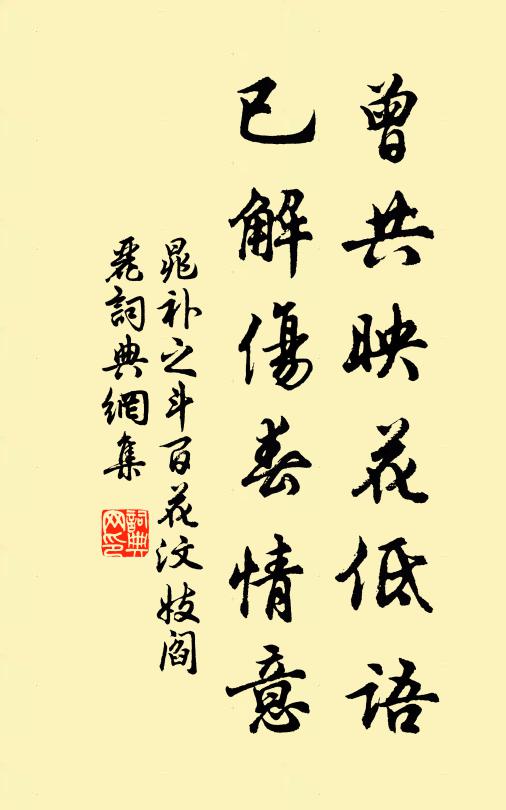 曾共映花低語
已解傷春情意
晁补之斗百花汶妓阎
麗詞典網集
詞典
网印